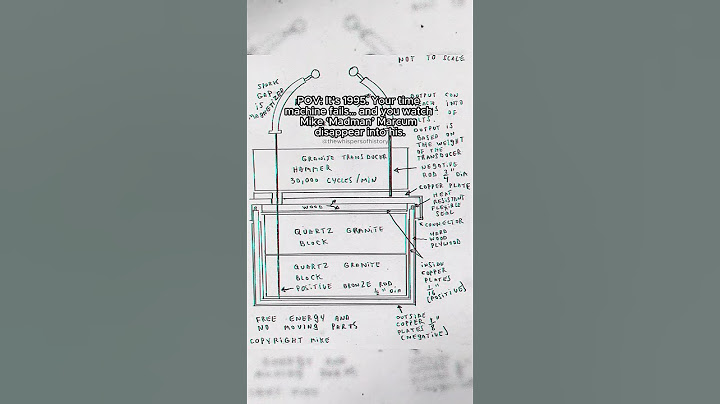 NOT TO SCALE
SPARK
GAP
IS
MAGNETIZED
POV: It's 1995. Your time
machine fails... and you watch
Mike 'Madman' Marcum
disappear into his.
@thewhispersofhistory
OUTPUT CON
EACH INTO
OF
OUTPUT IS
BASED ON
THE WEIGHT
OF THE
TRANSDUCER
GRANITE TRANSDUCER
HAMMER
30,000 CYCLES/MIN
NEGATIVE
ROD 3/4" DIA
COPPER PLATE
HEAT
RESISTANT
FLEXIBLE
SEAL
WOOD
CONNECTOR
HARD
WOOD
PLYWOOD
QUARTZ GRANITE
BLOCK
QUARTZ GRANITE
BLOCK
POSITIVE BRONZE ROD
1/2" DIA
INSIDE
COPPER
PLATES
1/16"
(POSITIVE)
OUTSIDE
COPPER 1/8"
PLATES
(NEGATIVE)
FREE ENERGY AND
NO MOVING PARTS
COPYRIGHT MIKE